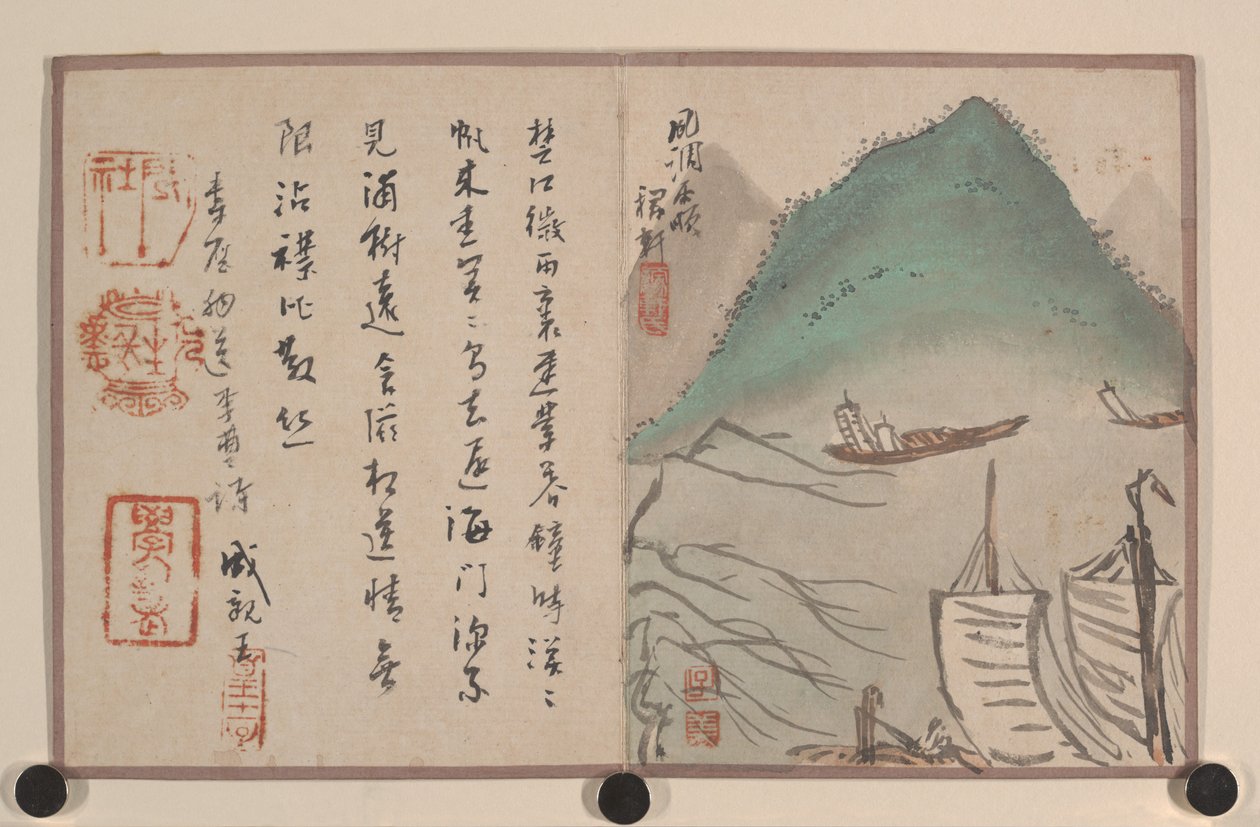 風調雨順
軒
楚江微雨裏建業暮鐘時漠〻
帆來重冥〻鳥去遲海門深不
見浦樹遠含滋相送情無
限沾襟比散絲
韋應物送李曹詩
成親王
皇十一子